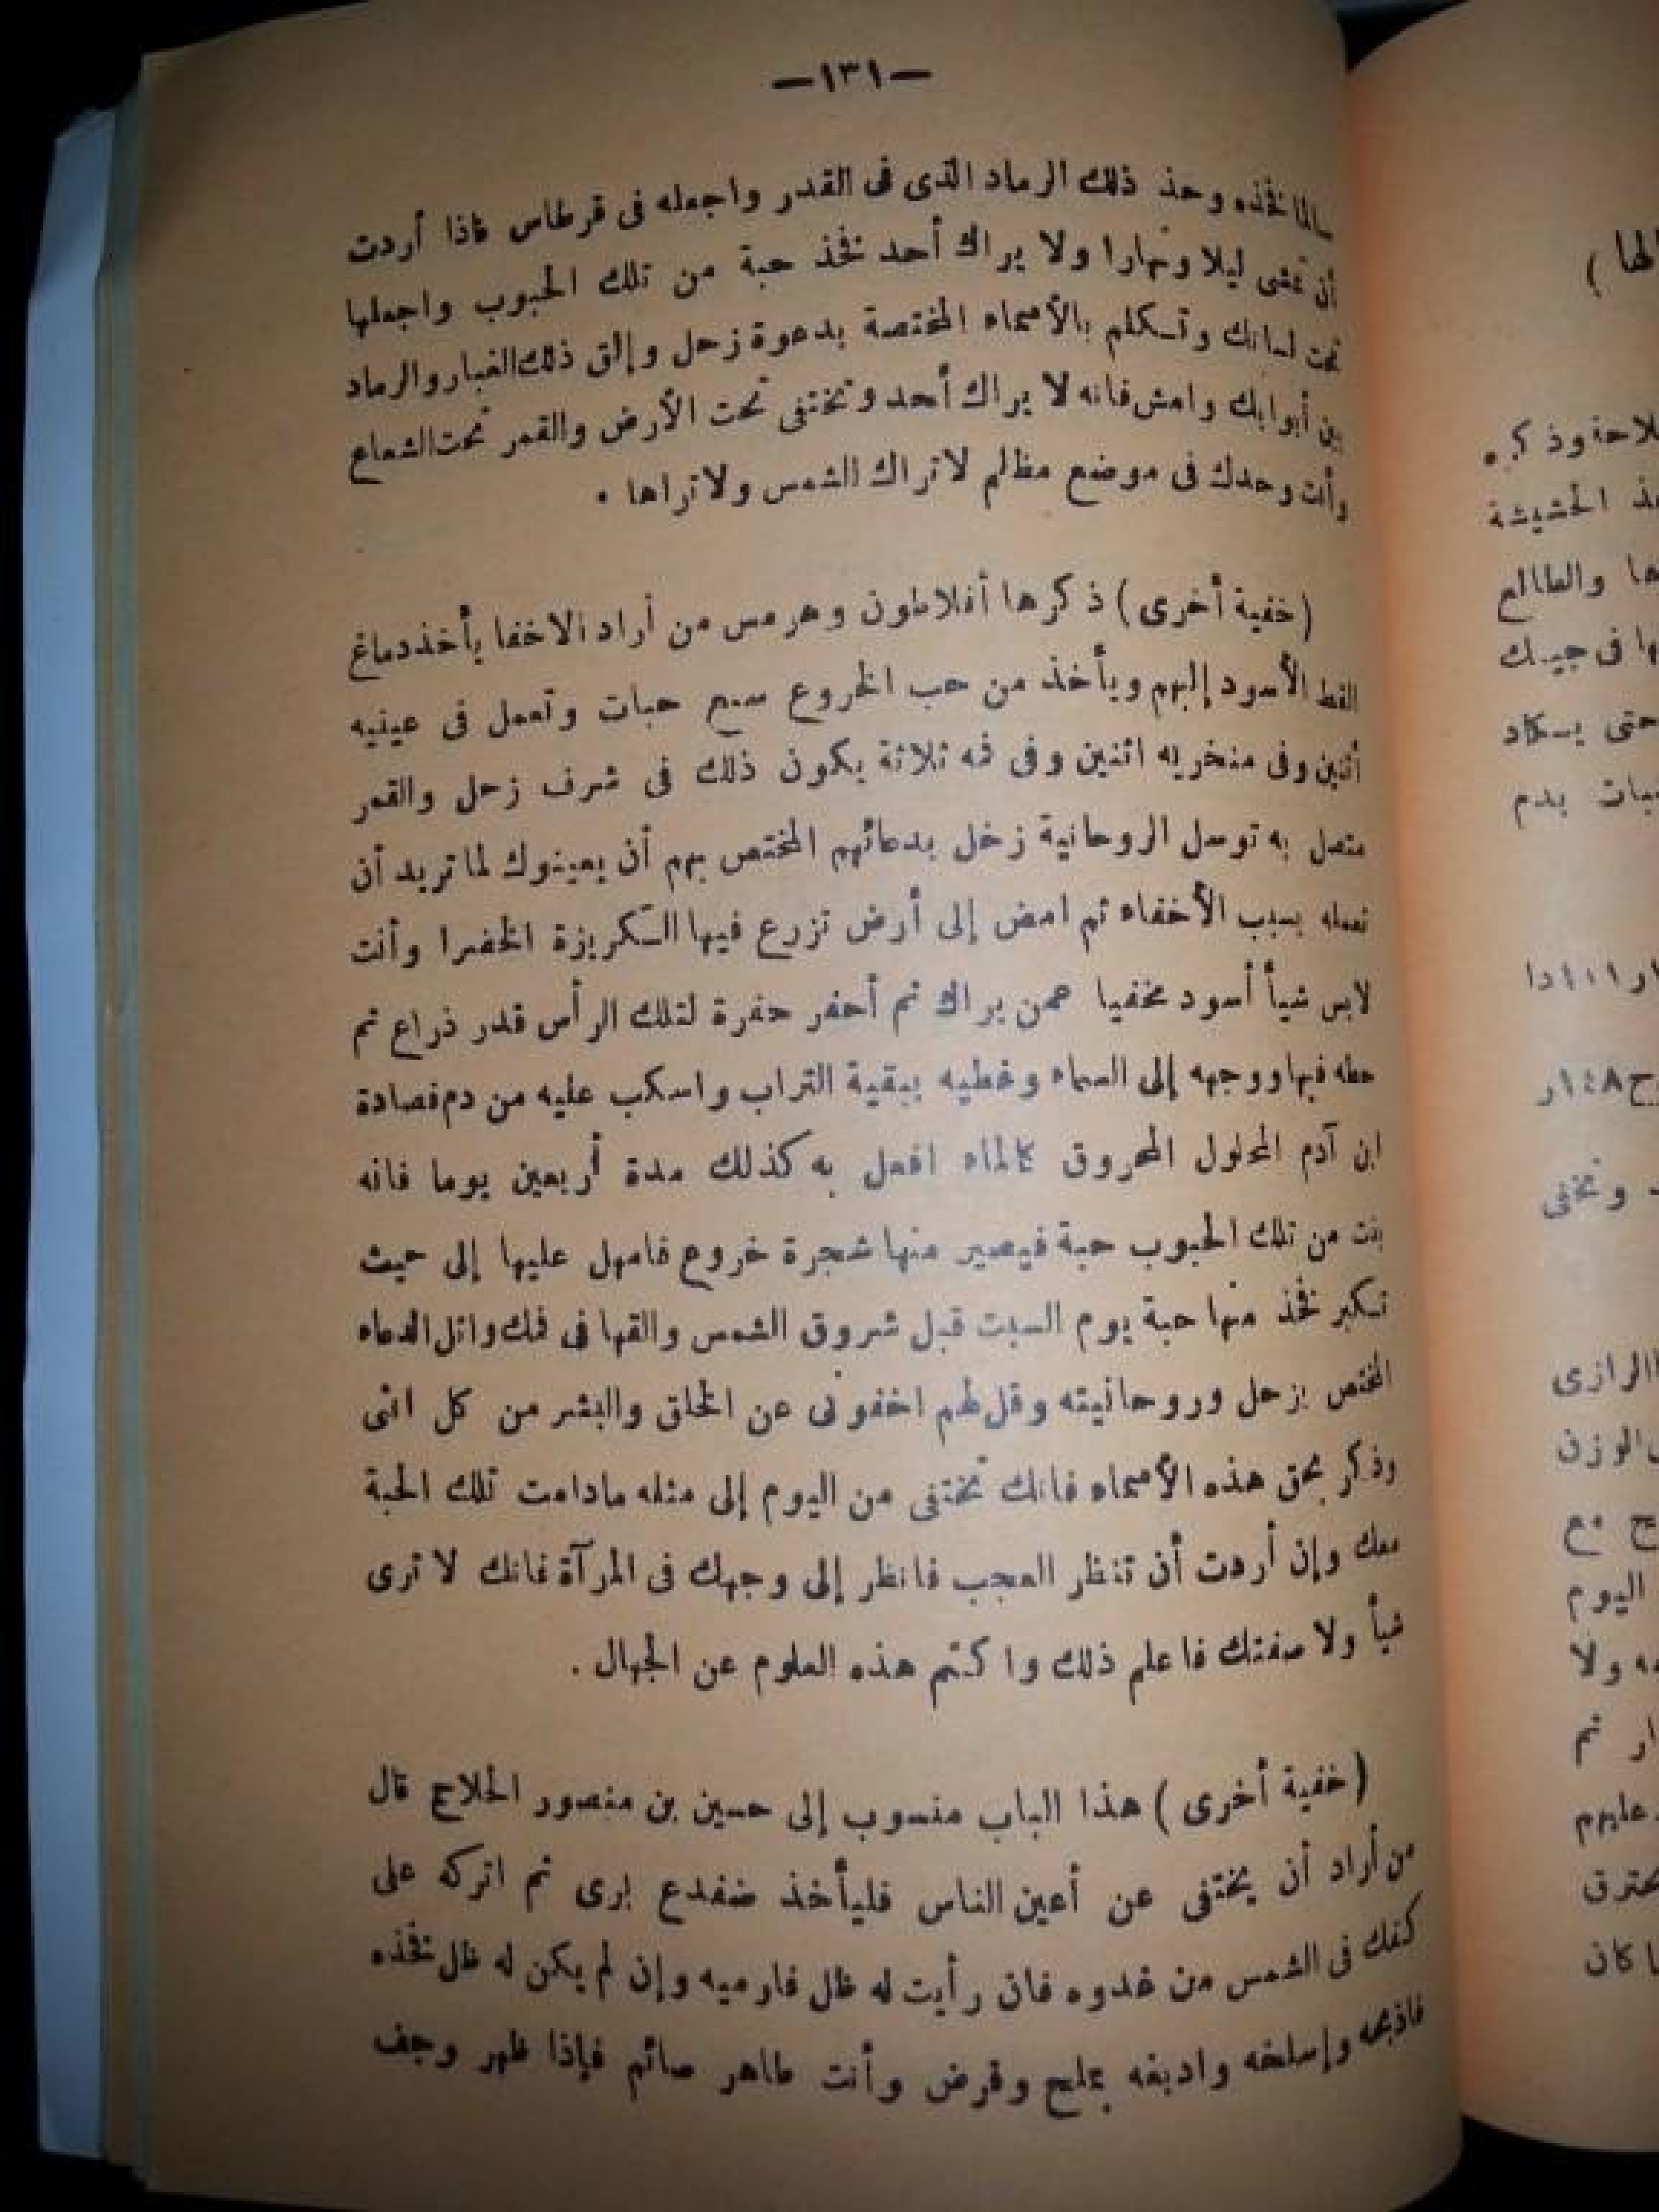 —١٣١—
سالما فخذه وحذ ذلك الرماد الذى فى القدر واجعله فى قرطاس فاذا أردت
أن تمشى ليلا ونهارا ولا يراك أحد فخذ حبة من تلك الحبوب واجعلها
تحت لسانك وتسكلم بالأسماء المختصة بدعوة زحل وإلق ذلك الغبار والرماد
بين أبوابك وامش فانه لا يراك أحد وتختفى تحت الأرض والقمر تحت الشعاع
وأنت وحدك فى موضع مظالم لا تراك الشمس ولا تراها .
(خفية أخرى) ذكرها أفلاطون وهرمس من أراد الاخفا يأخذ دماغ
القط الأسود إلبهم ويأخذ من حب الخروع سبع حبات وتعمل فى عينيه
أثنين وفى منخريه اثنين وفى فمه ثلاثة يكون ذلك فى شرف زحل والقمر
متصل به توسل الروحانية زخل بدعائهم المختص بهم أن يعينوك لما تريد أن
تعمله بسبب الأخفاء ثم امض إلى أرض تزرع فيها السكريزة الخضرا وأنت
لابس شيأ أسود مخفيا عمن يراك ثم أحفر حفرة لتلك الرأس قدر ذراع ثم
حطه فيها ووجهه إلى السماء وغطيه ببقية التراب واسكب عليه من دم فصادة
ابن آدم المحلول المحروق كالماء افعل به كذلك مدة أربعين يوما فانه
بنت من تلك الحبوب حبة فيصير منها شجرة خروع فامهل عليها إلى حيث
تكبر فخذ منها حبة يوم السبت قبل شروق الشمس والقها فى فمك واتل الدعاء
المختص بزحل وروحانيته وقل لهم اخفونى عن الخلق والبشر من كل انثى
وذكر بحق هذه الأسماء فانك تختفى من اليوم إلى مثله مادامت تلك الحبة
معك وإن أردت أن تنظر العجب فانظر إلى وجهك فى المرآة فانك لا ترى
شيأ ولا صفتك فاعلم ذلك واكتم هذه العلوم عن الجهال .
(خفية أخرى) هذا الباب منسوب إلى حسين بن منصور الحلاج قال
من أراد أن يختفى عن أعين الناس فليأخذ ضفدع برى ثم اتركه على
كفك فى الشمس من غدوه فان رأيت له ظل فارميه وإن لم يكن له ظل فخذه
فاذبحه وإسلخه وادبغه بملح وقرض وأنت طاهر صائم فإذا ظهر وجف
لها )
وذكره
الحشيشة
والطالع
فى جيبك
حتى يسكاد
بدم
١٤٨ر
وتختفى
الرازى
الوزن
مع
اليوم
ولا
ثم
عليهم
كان